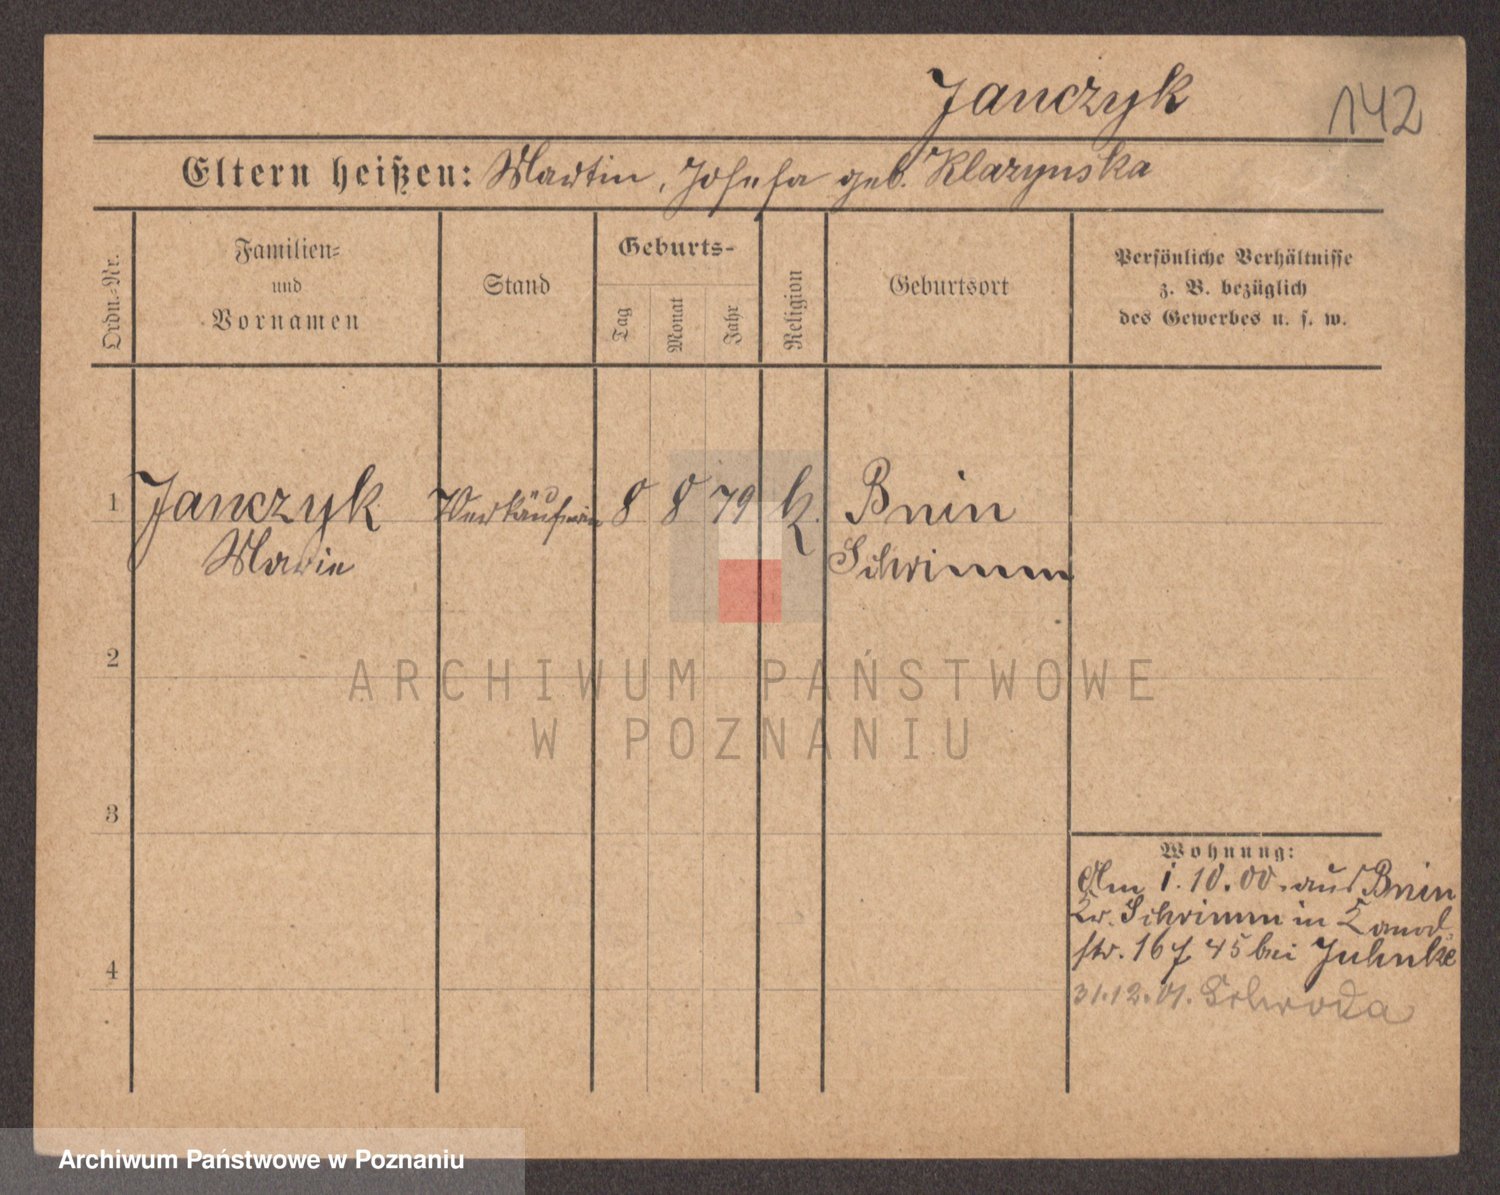 Janczyk
142
Eltern heißen: Martin, Josefa geb. Klazynska
Ordn.-Nr.
Familien-
und
Vornamen
Stand
Geburts-
Tag
Monat
Jahr
Religion
Geburtsort
Persönliche Verhältnisse
z. B. bezüglich
des Gewerbes u. s. w.
1 Janczyk Verkäuferin 8 8 79 k. Bnin
Marie Schrimm
2
3
4
Wohnung:
Am 1.10.00. aus Bnin
Kr. Schrimm in
str. 16 45 bei Juhnke
31.12.01. Schroda
ARCHIWUM PAŃSTWOWE
W POZNANIU
Archiwum Państwowe w Poznaniu